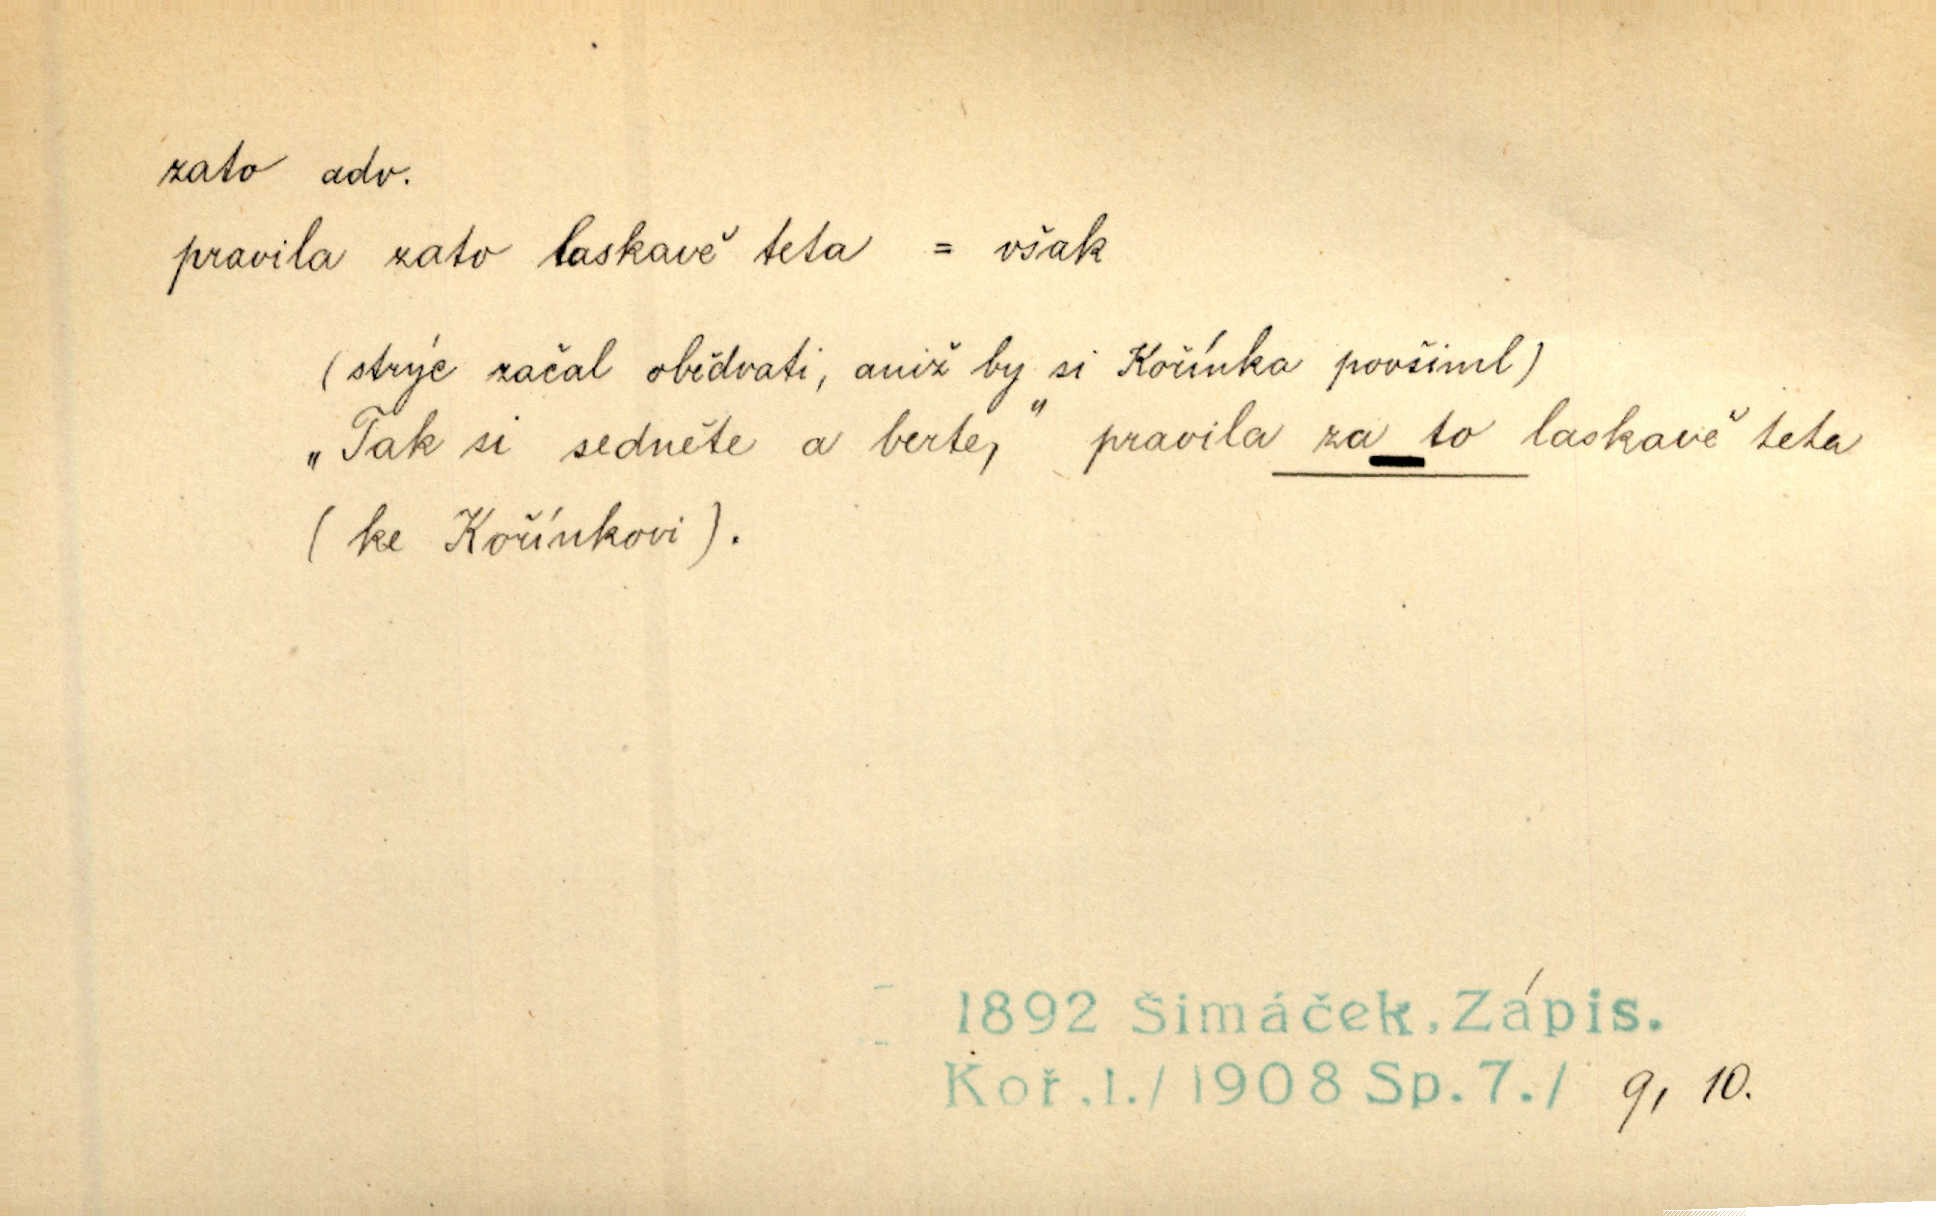 zato adv.
pravila zato laskavě teta = však
(strýc začal obědvati, aniž by si Kořínka povšiml)
„Tak si sedněte a berte," pravila za to laskavě teta
(ke Kořínkovi).
1892 Šimáček, Zápis.
Koř.1./1908 Sp.7./ 9, 10.